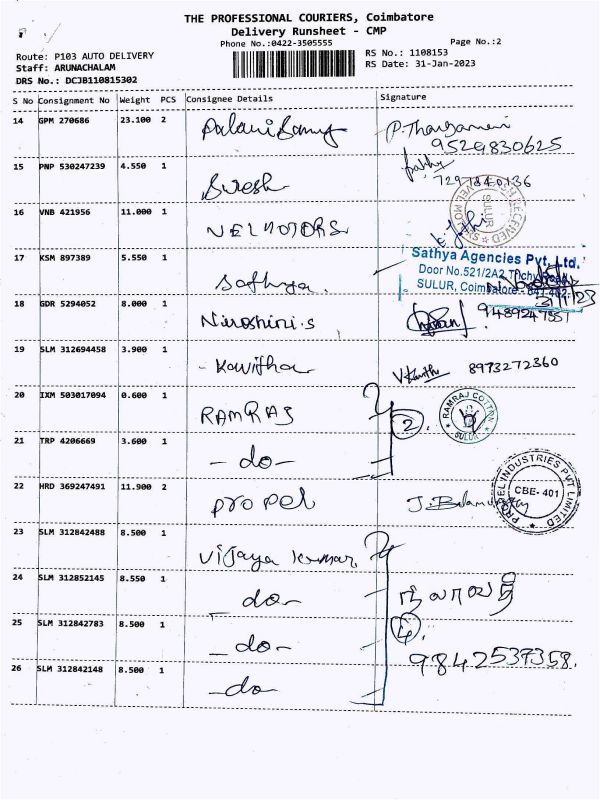 THE PROFESSIONAL COURIERS, Coimbatore
Delivery Runsheet - CMP
Phone No.:0422-3505555
Page No.:2
Route: P103 AUTO DELIVERY
RS No.: 1108153
Staff: ARUNACHALAM
RS Date: 31-Jan-2023
DRS No.: DCJB110815302
S No Consignment No Weight PCS Consignee Details Signature
14 GPM 270686 23.100 2 Palani Samy P. Thangamani
9529830625
15 PNP 530247239 4.550 1 Suresh
7297840136
16 VNB 421956 11.000 1 VELMOTORS
RECEIVED SULUR
17 KSM 897389 5.550 1 Sathya.
Sathya Agencies Pvt. Ltd.
Door No.521/2A2, Trichy Road,
SULUR, Coimbatore - 641 402.
18 GDR 5294052 8.000 1 Niroshini.s
19 SLM 312694458 3.900 1 - Kavitha 8973272360
20 IXM 503017094 0.600 1 RAMRAJ 2.
RAMRAJ COTTON SULUR
21 TRP 4206669 3.600 1 - do -
22 HRD 369247491 11.900 2 Propel
PROPEL INDUSTRIES PVT LIMITED
CBE- 401
23 SLM 312842488 8.500 1 Vijaya kumar
24 SLM 312852145 8.550 1 do - நிலாவதி
25 SLM 312842783 8.500 1 - do - 4.
9842537358.
26 SLM 312842148 8.500 1 - do